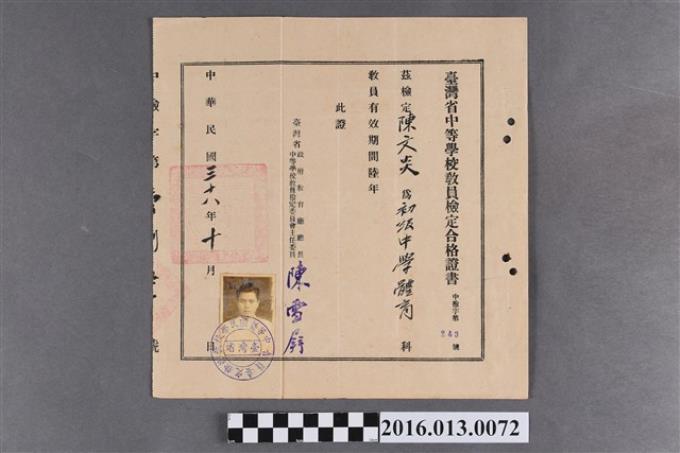 臺灣省中等學校教員檢定合格證書
中檢字第 243 號
茲檢定陳文炎為初級中學體育科
教員有效期間陸年
此證
臺灣省政府教育廳廳長
中等學校教員檢定委員會主任委員
陳雪屏
中華民國三十八年十月 日
中檢字第 號
臺灣省
2016.013.0072